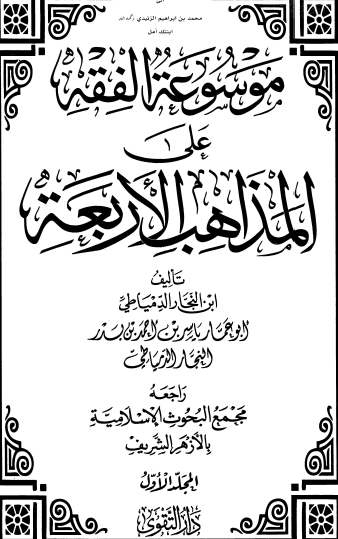 محمد بن ابراهيم الزبيدي
موسوعة الفقه
على
المذاهب الأربعة
تأليف
ابن النجار الدمياطي
أبو عمار ياسر بن أحمد بن بدر
النجار الدمياطي
راجعه
مجمع البحوث الإسلامية
بالأزهر الشريف
المجلد الأول
دار التقوى